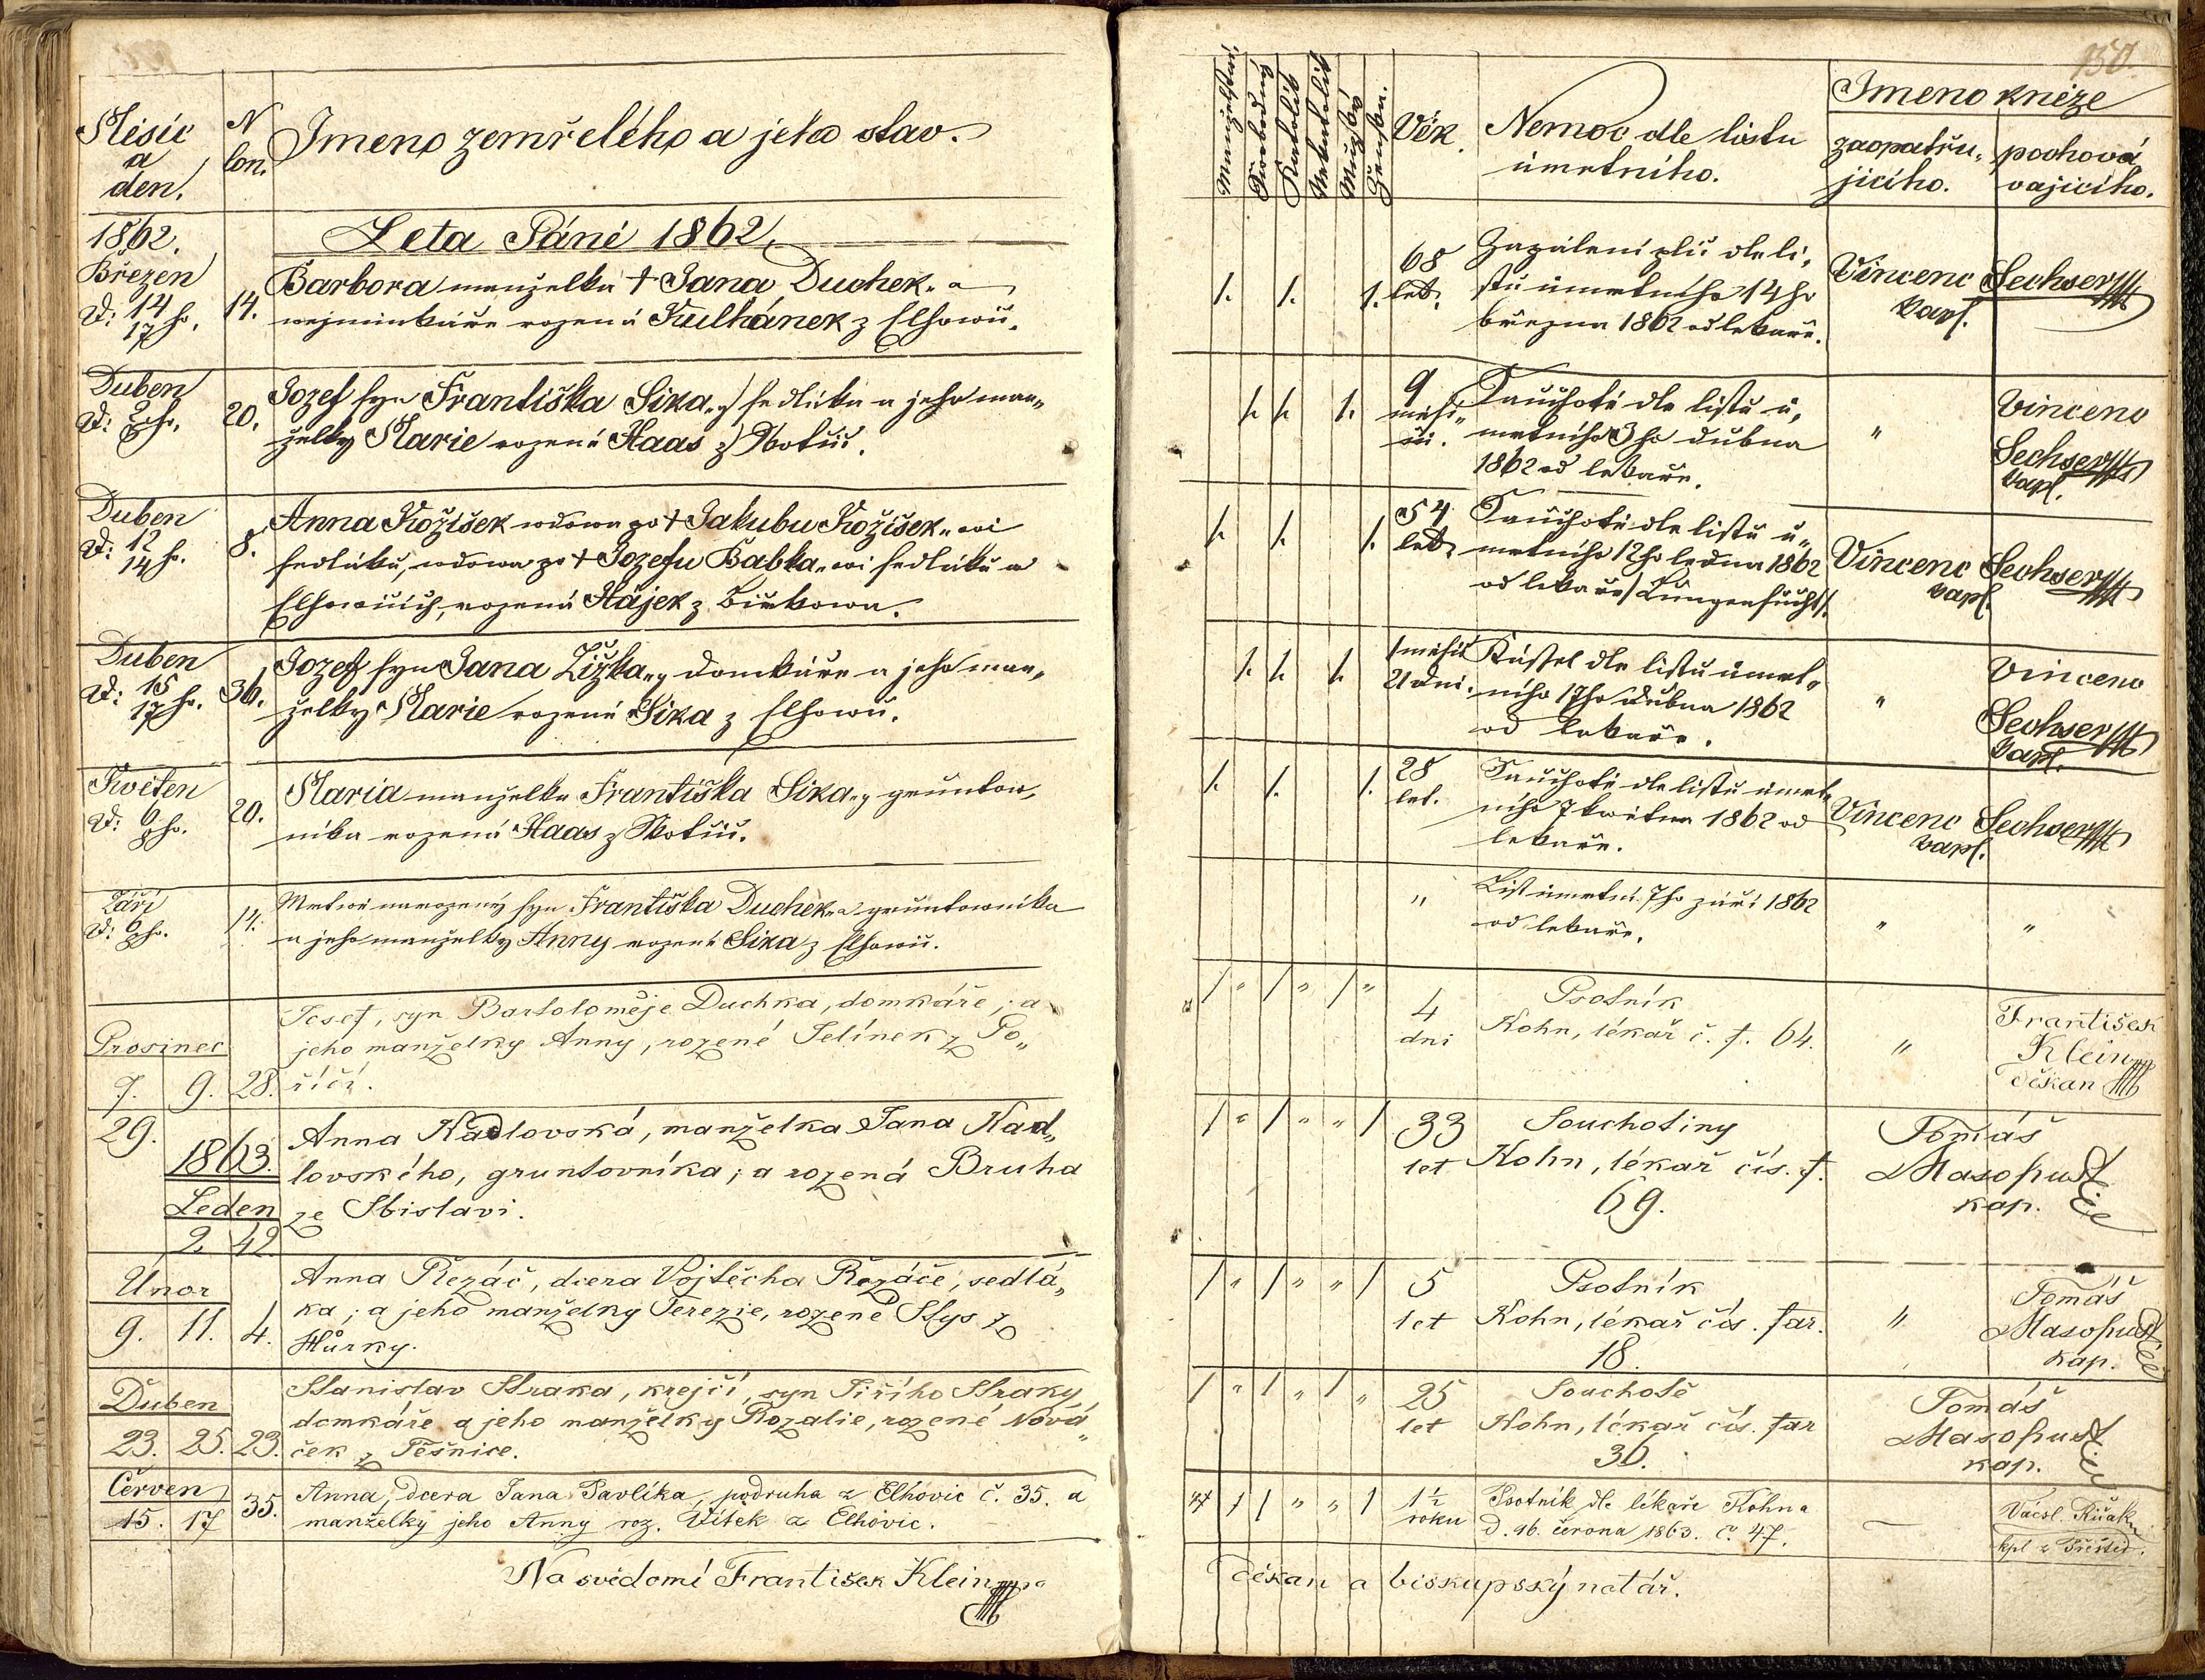 Měsíc
a
den.
N
Con.
Jmeno zemřelého a jeho stav.
1862.
Leta Páně 1862.
Březen
d: 14 17 ho.
14.
Barbora manželka † Jana Duchek-a
wejminkáře rozená Kulhánek z Elhowic.
Duben
20.
Jozef syn Františka Sika-y sedláka a jeho man-
želky Marie rozené Haas z
Duben
d: 12 14 ho.
8.
Anna Kožišek wdowa po † Jakubu Kožišek-owi
sedláku, wdowa po † Jozefu Babka-owi sedláku w
Elhowicích, rozená Hájek z
Duben
d: 15 17 ho.
36.
Jozef syn Jana Žižka-y domkáře a jeho man-
želky Marie rozené Sika z Elhowic.
Kwěten
d: 6 8 ho.
20.
Maria manželka Františka Sika-y gruntow-
níka rozená Haas z
Září
d: 6 8 ho.
14.
Mrtwě narozený syn Františka Duchek-a gruntowníka
a jeho manželky Anny rozené Sika z Elhowic.
Prosinec
7. 9. 28.
Josef, syn Bartoloměje Duchka, domkáře; a
jeho manželky Anny, rozené Jelínek z Po-
říčí.
29.
1863.
Leden
2. 42.
Anna Kadlovská, manželka Jana Kad-
lovského, gruntovníka; a rozená Bruha
ze Sbislavi.
Unor
9. 11. 4.
Anna Řezáč, dcera Vojtěcha Řezáče, sedlá-
ka; a jeho manželky Terezie, rozené Stys z
Hůrky.
Duben
23. 25. 23.
Stanislav Straka, krejčí, syn Jiřího Straky,
domkáře a jeho manželky Rozalie, rozené Nová-
ček z Těšnice.
Červen
15. 17 35.
Anna, dcera Jana Pavlíka, podruha z Elhovic č. 35. a
manželky jeho Anny roz. Vítek z Elhovic.
Na svědomí František Klein mpa
150.
Manželství
Swobodný
Katolík
Nekatolík
Mužský
Ženská.
Věk.
Nemoc dle listu
úmrtního.
Jmeno kněze
zaopatřu-
jícího.
pochová
vajícího.
1. 1. 1.
68
let.
Zapálení plic dle li-
stu úmrtního 14ho
března 1862 od lekaře.
Vincenc Sechser
kapl.
1. 1. 1.
9
měsí-
ců.
Sauchotě dle listu ú-
mrtního 3ho dubna
1862 od lekaře.
"
Vincenc
Sechser
kapl.
1. 1. 1.
54
let.
Sauchotě dle listu ú-
mrtního 12ho ledna 1862
od lekaře / Lungensucht /.
Vincenc Sechser
kapl.
1. 1. 1.
1 měsíc
21 dní.
Kašel dle listu úmrt-
ního 17ho dubna 1862
od lekaře.
"
Vincenc
Sechser
kapl.
1. 1. 1.
28
let.
Sauchotě dle listu úmrt-
ního 7 kwětna 1862 od
lekaře.
Vincenc Sechser
kapl.
"
List úmrtní 7ho září 1862
od lekaře.
" "
/ " / " / "
4
dni
Psotník
Kohn, lékař č. f. 64.
"
František
Klein
děkan
/ " / " " /
33
let
Souchotiny
Kohn, lékař čís. f.
69.
Tomáš
Masopust
kap.
/ " / " " /
5
let
Psotník
Kohn, lékař čís. far.
18.
"
Tomáš
Masopust
kap.
/ " / " / "
25
let
Souchotě
Kohn, lékař čís. far
36.
Tomáš
Masopust
kap.
" / / " " /
1½
roku
Psotník dle lékaře Kohna
d. 16. června 1863. č. 47.
—
Václ.
kpl z Přeštic.
děkan a biskupský notář.